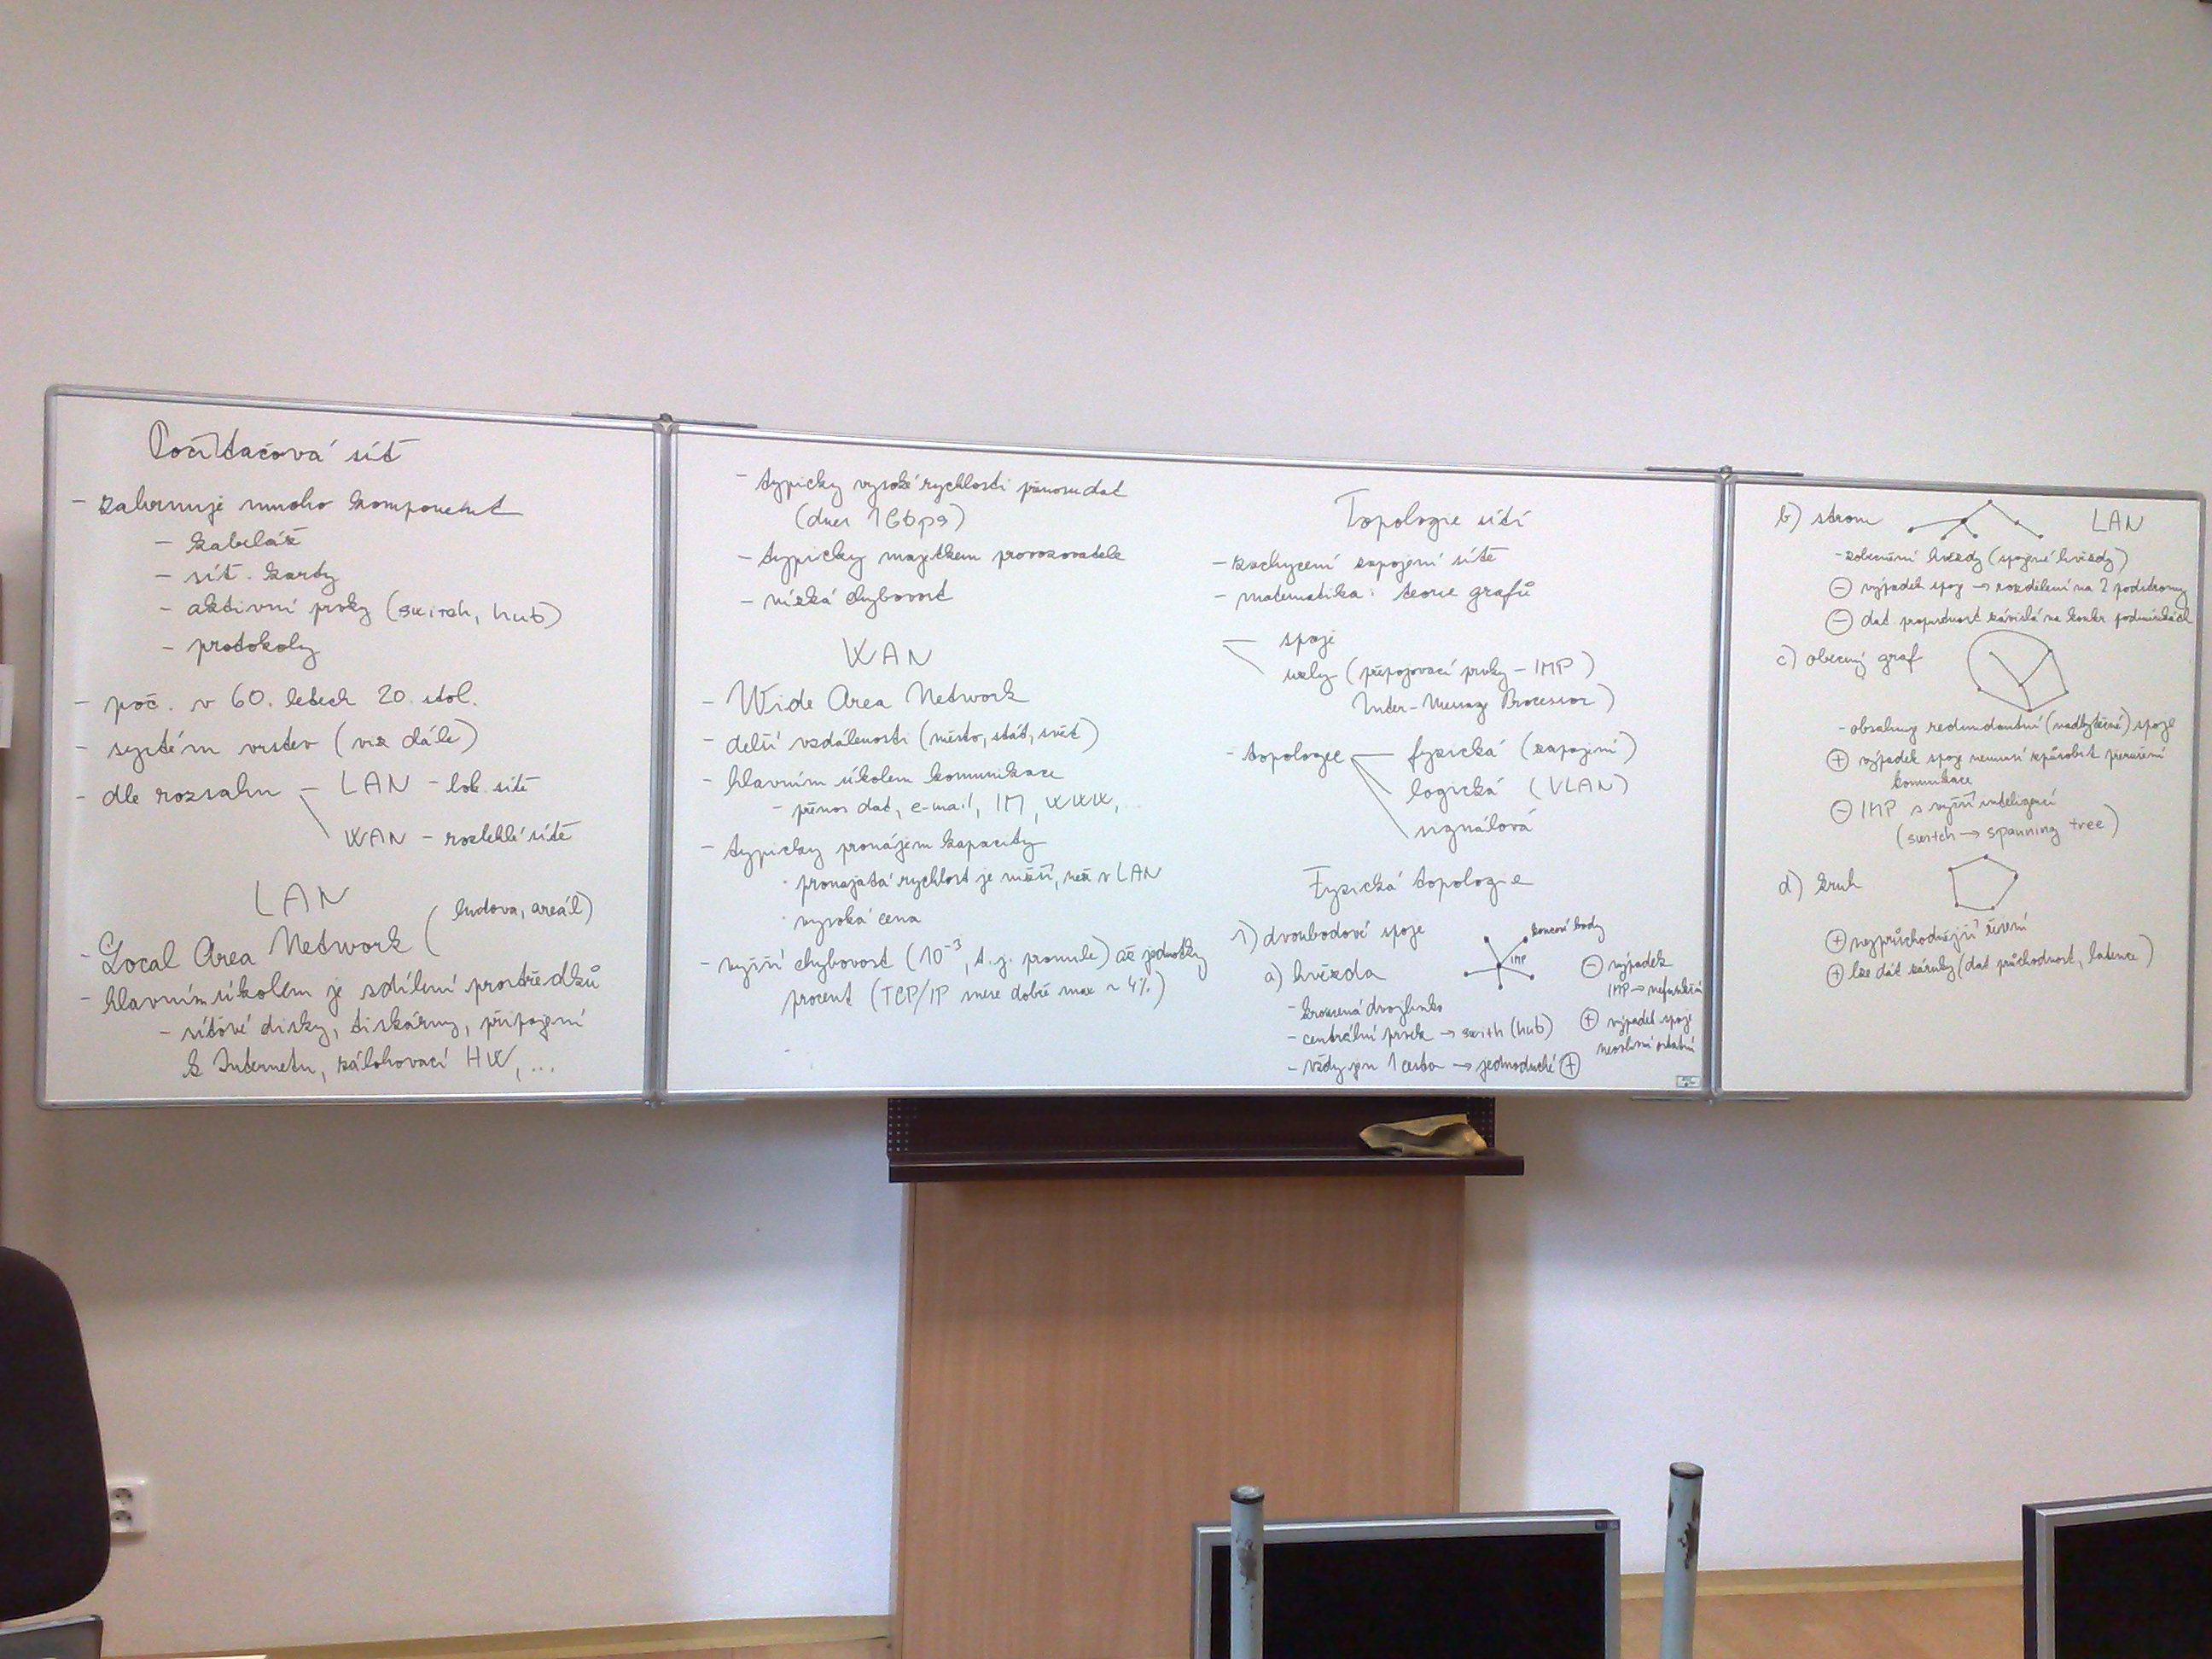 Počítačová síť
- zahrnuje mnoho komponent
- kabeláž
- síť. karty
- aktivní prvky (switch, hub)
- protokoly
- poč. v 60. letech 20. stol.
- systém vrstev (viz dále)
- dle rozsahu - LAN - lok. sítě
WAN - rozlehlé sítě
LAN
- Local Area Network (budova, areál)
- hlavním úkolem je sdílení prostředků
- síťové disky, tiskárny, připojení
k Internetu, zálohovací HW, ...
- typicky vysoké rychlosti přenosu dat
(dnes 1Gbps)
- typicky majetkem provozovatele
- nízká chybovost
WAN
- Wide Area Network
- delší vzdálenosti (město, stát, svět)
- hlavním úkolem komunikace
- přenos dat, e-mail, IM, WWW, ...
- typicky pronájem kapacity
· pronajatá rychlost je nižší, než v LAN
· vysoká cena
- vyšší chybovost (10⁻³, t.j. promile) až jednotky
procent (TCP/IP snese dobře max ~ 4%)
Topologie sítí
- zachycení zapojení sítě
- matematika: teorie grafů
spoje
uzly (připojovací prvky - IMP)
Inter-Message Processor)
- topologie - fyzická (zapojení)
logická (VLAN)
signálová
Fyzická topologie
1) dvoubodové spoje
a) hvězda
koncové body
IMP
- kroucená dvojlinka
- centrální prvek → swith (hub)
- vždy jen 1 cesta → jednoduché ⊕
⊖ výpadek
IMP → nefunkční
⊕ výpadek spoje
neovlivní ostatní
b) strom LAN
- zobecnění hvězdy (spojené hvězdy)
⊖ výpadek spoj → rozdělení na 2 podstromy
⊖ dat. propustnost závislá na konkr. podmínkách
c) obecný graf
- obsahuje redundantní (nadbytečné) spoje
⊕ výpadek spoje nemusí způsobit přerušení
komunikace
⊖ IMP s vyšší inteligencí
(switch → spanning tree)
d) kruh
⊕ nejprůchodnější řešení
⊕ lze dát záruky (dat. průchodnost, latence)